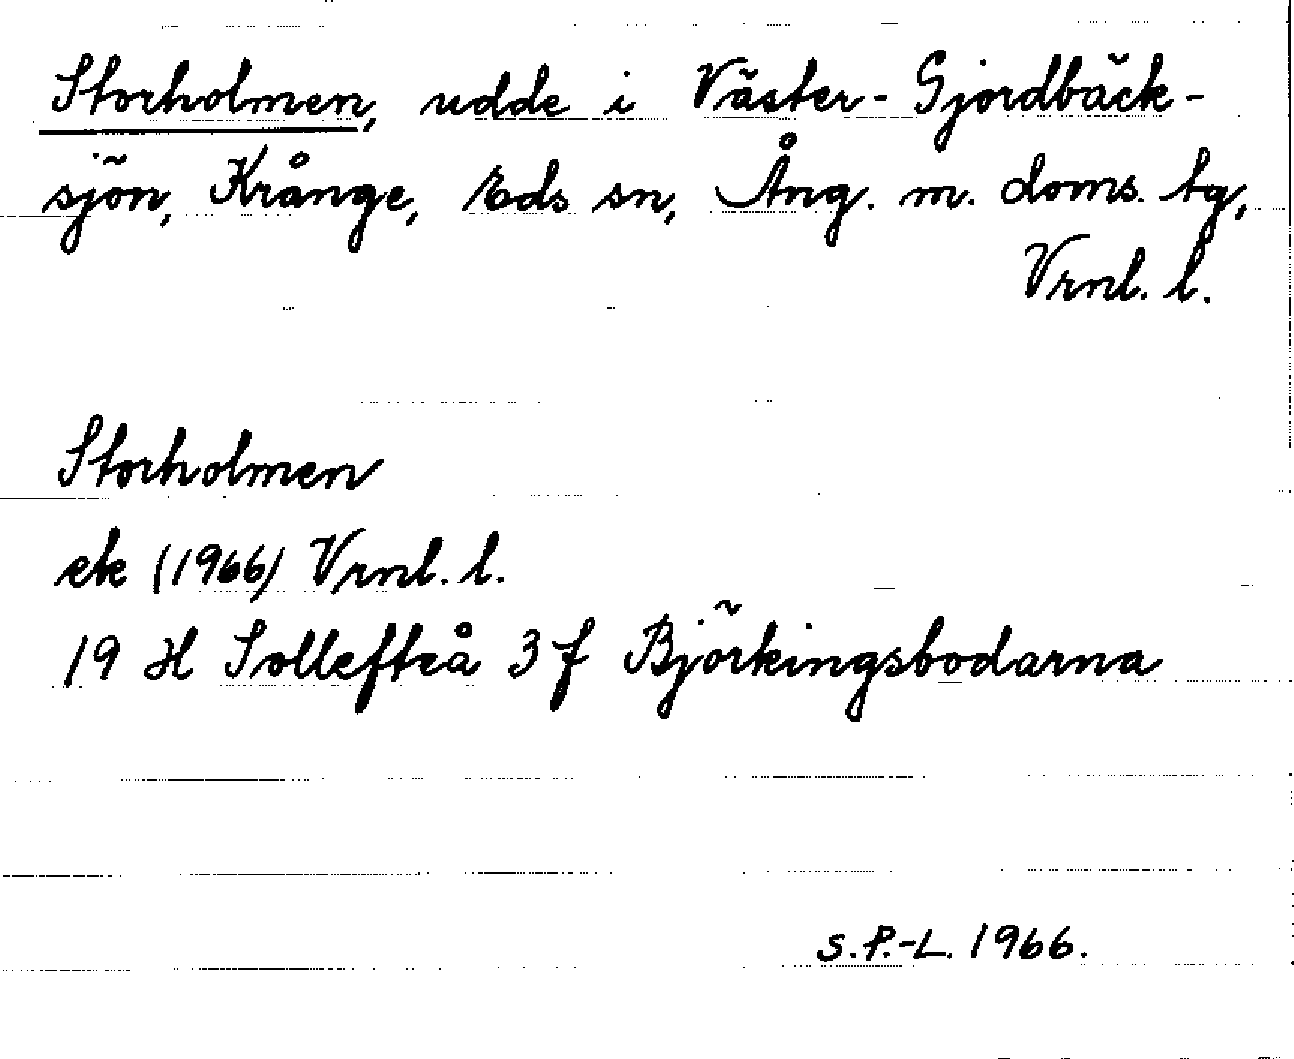 Storholmen, udde i Väster-Gjordbäck-
sjön, Krånge, Eds sn, Ång. m. doms. tg,
Vrnl. l.
Storholmen
ek (1966) Vrnl. l.
19 H Sollefteå 3 f Björkingsbodarna
S.P.-L. 1966.